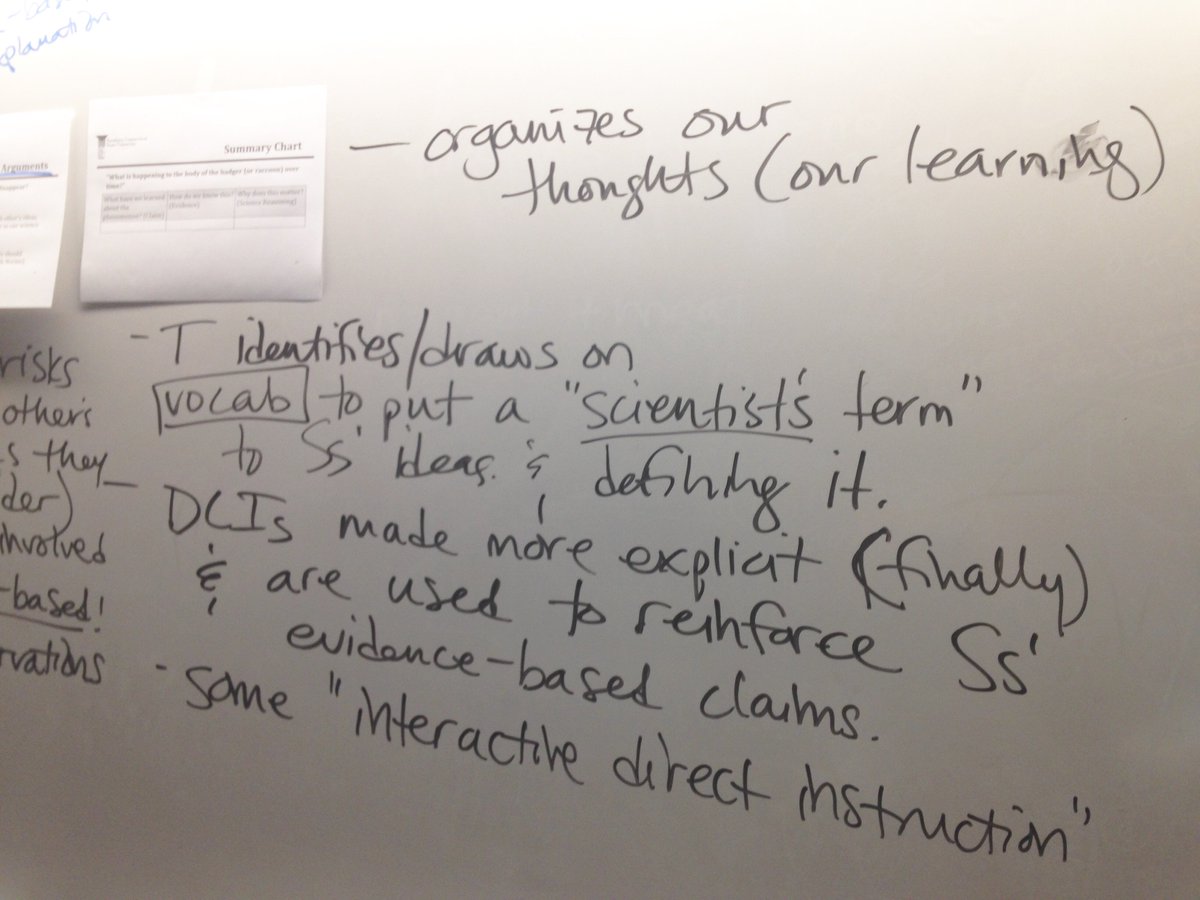 planation
Arguments
Summary Chart
"What is happening to the body of the badger (or raccoon) over
time?"
What have we learned about the phenomenon? (Claim)
How do we know this? (Evidence)
Why does this matter? (Science Reasoning)
— organizes our
thoughts (our learning)
- T identifies/draws on
vocab to put a "scientist's term"
to Ss' ideas & defining it.
- DCIs made more explicit (finally)
& are used to reinforce Ss'
evidence-based claims.
- Some "interactive direct instruction"
risks
others
s they
der)
involved
-based!
rvations